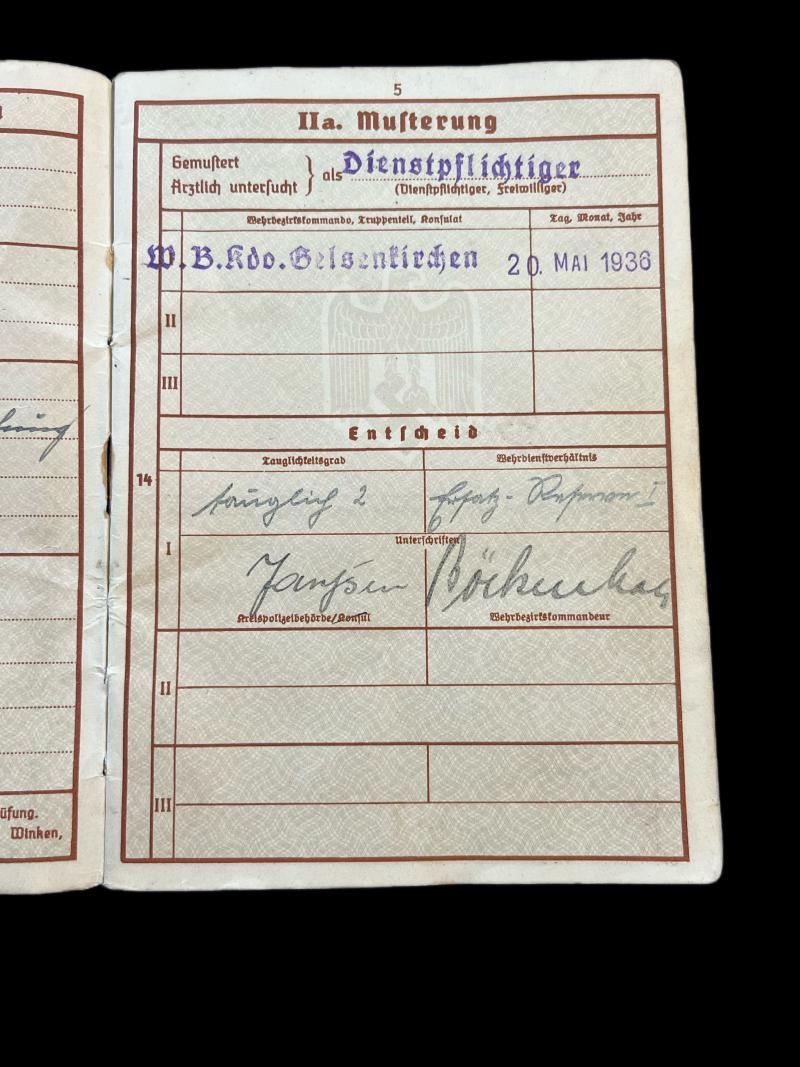 5
IIa. Musterung
Gemustert
Ärztlich untersucht } als Dienstpflichtiger
(Dienstpflichtiger, Freiwilliger)
Wehrbezirkskommando, Truppenteil, Konsulat Tag, Monat, Jahr
W.B.Kdo.Gelsenkirchen 20. MAI 1936
II
III
Entscheid
Tauglichkeitsgrad Wehrdienstverhältnis
14
tauglich 2 Ersatz-Reserve I
I
Unterschriften
Janssen
Kreispolizeibehörde/Konsul Wehrbezirkskommandeur
II
III
üfung.
Winken,